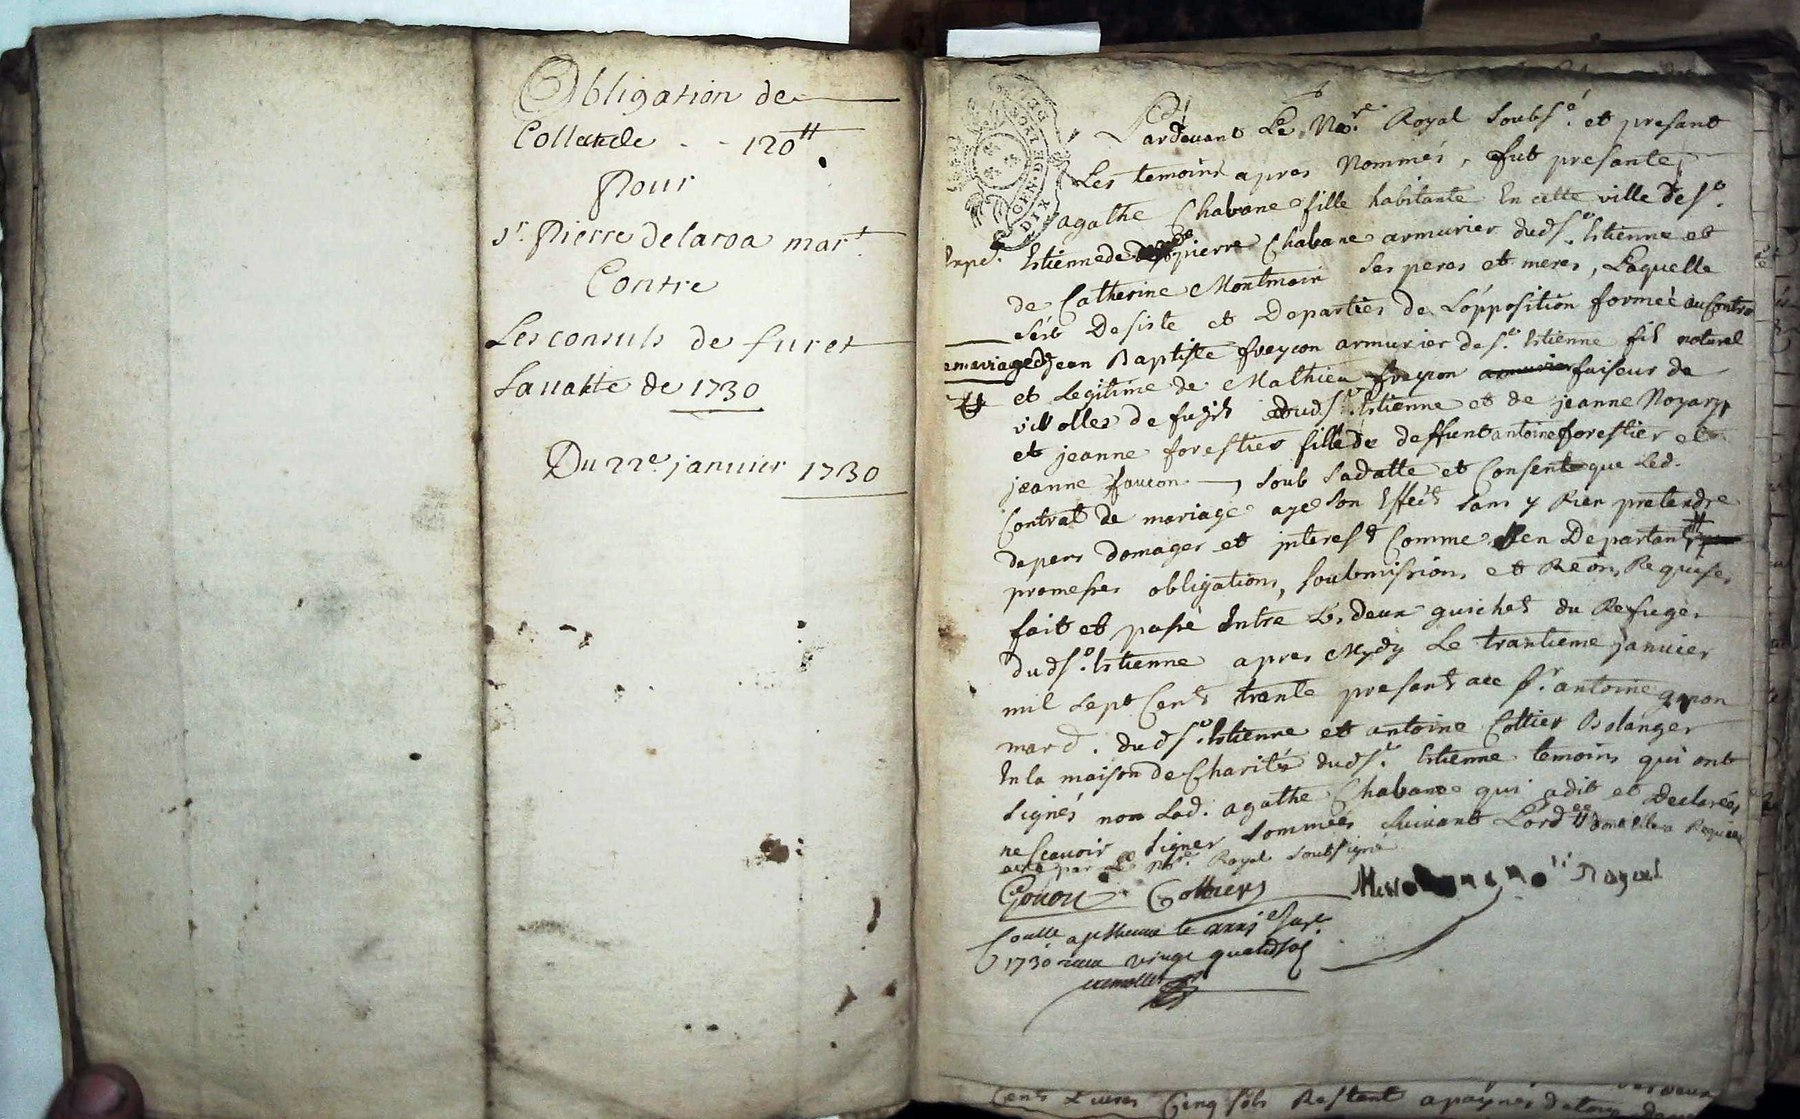 Obligation de
Collecte - - 120tt.
Pour
Sr. Pierre delaroa mart.
Contre
Les consuls de furet
La uallte de 1730
Du 22e janvier 1730
Pardevant Le Nore. Royal soubs.é et presant
Les temoins apres Nommés, fut presante
agathe Chabane fille habitante En cette ville de st.
Expd. Estienne de pierre Chabane armurier dudst. Estienne et
de Catherine Montmain ses peres et meres, Laquelle
s'est Desiste et Departies de L'opposition formeé au Contra
emariage de Jean Baptiste freycon armurier de st. Estienne fils naturel
et Legitime de Mathieu freycon faiseur de
de fusils dudst. Estienne et de jeanne Noyary
et jeanne forestier fille de deffunt antoine forestier et
jeanne faucon , soub sadatte et Consent que Led.
Contrat de mariage aye son Effect sans y Rien pretendre
depens domages et interest Comme s'en Departant
promesses obligations, soubmissions et Reons. Requises
fait et passé Entre Les deux guichets du Refuge
dudst. Estienne apres Mydy Le trantieme janvier
mil sept Cents trante presants ace sr. antoine
mard. dudst. Estienne et antoine Cottier Bolanger
En la maison de Charité dudst. Estienne temoins qui ont
signés non Lad. agathe Chabane qui a dit et Declarées
ne scavoir signer sommeés suivant L'ord Requis
acte par Le Nre. Royal soubsigne
Cottier Royal
Conlle a st Etienne le xxxje janr.
1730 vingt quatre sols
Cents Livres Cinq sols Restent a payer